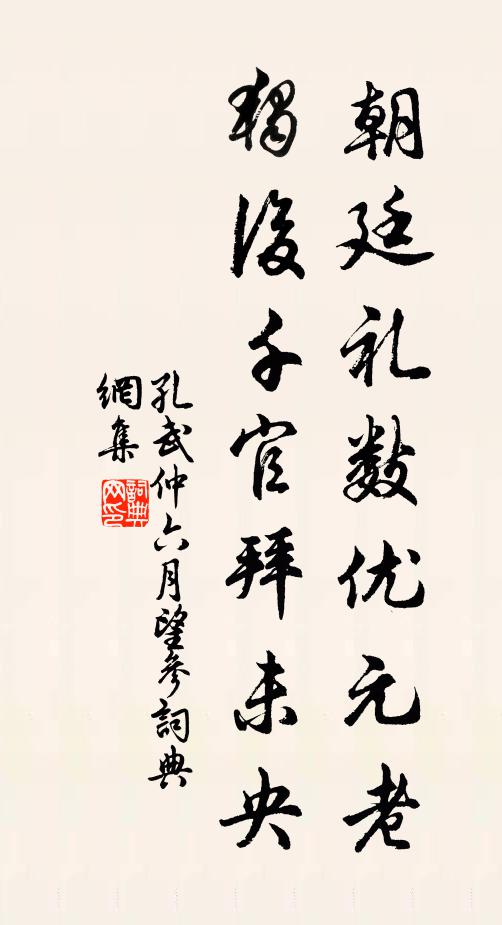 朝廷礼数优元老
独后千官拜未央
孔武仲六月望参詞典
網集
詞典
网印